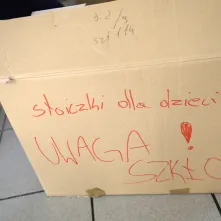 szt 114
stoiczki dla dzieci
UWAGA !
SZKŁO